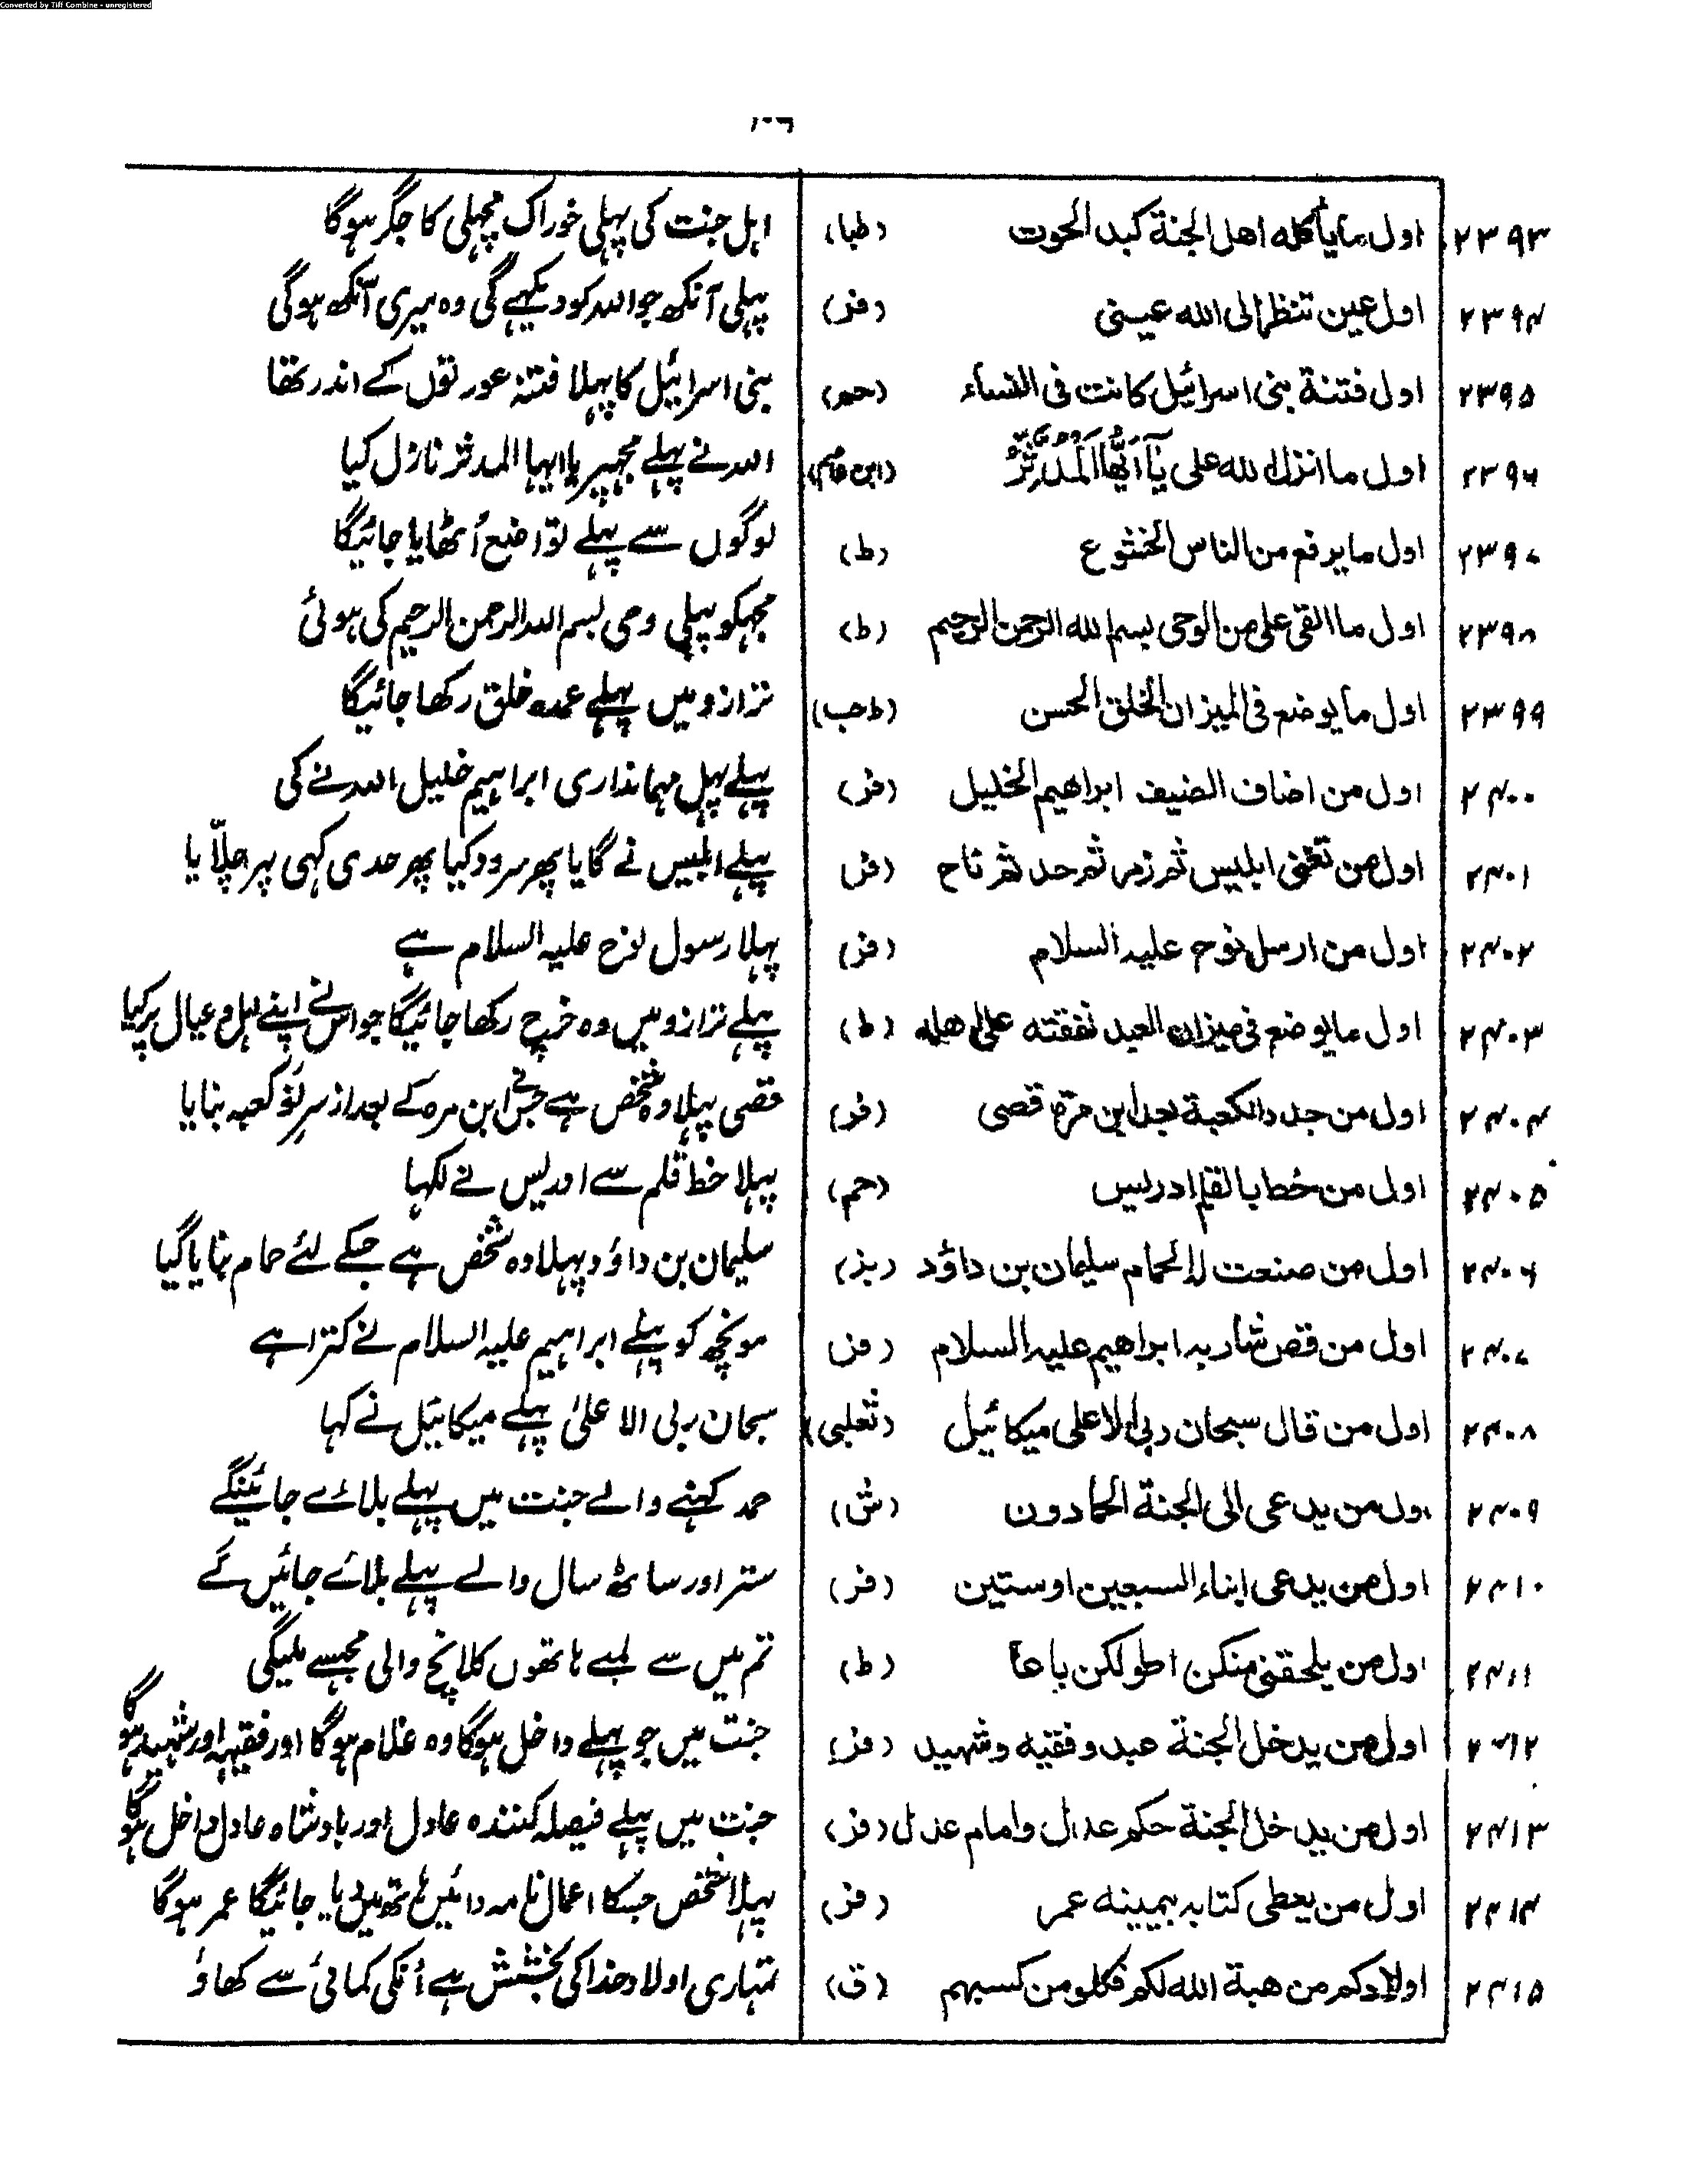 Converted by Tiff Combine - unregistered
۲۳۹۳ اول مایاکله اهل الجنة کبد الحوت (طبا) اہل جنت کی پہلی خوراک مچھلی کا جگر ہوگا
۲۳۹۴ اول عین تنظر الی الله عینی (فر) پہلی آنکھ جو اللہ کو دیکھے گی وہ میری آنکھ ہوگی
۲۳۹۵ اول فتنة بنی اسرائیل کانت فی النساء (حم) بنی اسرائیل کا پہلا فتنہ عورتوں کے اندر تھا
۲۳۹۶ اول ما انزل الله علی یَآ اَیُّهَا الْمُدَّثِّرُ اللہ نے پہلے مجہپر یا ایہا المدثر نازل کیا
۲۳۹۷ اول مایرفع من الناس الخشوع (ط) لوگوں سے پہلے تواضع اُٹھایا جائیگا
۲۳۹۸ اول ما القی علی من الوحی بسم الله الرحمن الرحیم (ط) مجہکو پہلی وحی بسم اللہ الرحمن الرحیم کی ہوئی
۲۳۹۹ اول مایوضع فی المیزان الخلق الحسن (طحب) ترازو میں پہلے عمدہ خلق رکھا جائیگا
۲۴۰۰ اول من اضاف الضیف ابراهیم الخلیل (فر) پہلے پہل مہمانداری ابراہیم خلیل اللہ نے کی
۲۴۰۱ اول من تغنی ابلیس ثم زمر ثم حدا ثم ناح (فر) پہلے ابلیس نے گایا پھر سرود کیا پھر حدی کہی پہر چلّایا
۲۴۰۲ اول من ارسل نوح علیه السلام (فر) پہلا رسول نوح علیہ السلام ہے
۲۴۰۳ اول مایوضع فی میزان العبد نفقته علی اهله (ط) پہلے ترازو میں وہ خرچ رکھا جائیگا جو اس نے اپنے اہل و عیال پر کیا
۲۴۰۴ اول من جدد الکعبة بعد ابن مرة قصی (فر) قصی پہلا وہ شخص ہے جس نے ابن مرہ کے بعد از سر نو کعبہ بنایا
۲۴۰۵ اول من خط بالقلم ادریس (حم) پہلا خط قلم سے ادریس نے لکہا
۲۴۰۶ اول من صنعت له الحمام سلیمان بن داؤد (بز) سلیمان بن داؤد پہلا وہ شخص ہے جسکے لئے حمام بنایا گیا
۲۴۰۷ اول من قص شاربه ابراهیم علیه السلام (فر) مونچھ کو پہلے ابراہیم علیہ السلام نے کترا ہے
۲۴۰۸ اول من قال سبحان ربی الاعلی میکائیل (ثعلبی) سبحان ربی الاعلیٰ پہلے میکائیل نے کہا
۲۴۰۹ اول من یدعی الی الجنة الحمادون (ش) حمد کہنے والے جنت میں پہلے بلائے جائینگے
۲۴۱۰ اول من یدعی ابناء السبعین او ستین (فر) ستر اور ساٹھ سال والے پہلے بلائے جائیں گے
۲۴۱۱ اول من یلحقنی منکن اطولکن باعا (ط) تم میں سے لمبے ہاتھوں کلانچ والی مجہسے ملیگی
۲۴۱۲ اول من یدخل الجنة عبد و فقیه و شهید (فر) جنت میں جو پہلے داخل ہوگا وہ غلام ہوگا اور فقیہہ اور شہید ہوگا
۲۴۱۳ اول من یدخل الجنة حکم عدل و امام عدل (فر) جنت میں پہلے فیصلہ کنندہ عادل اور بادشاہ عادل داخل ہوگا
۲۴۱۴ اول من یعطی کتابه بیمینه عمر (فر) پہلا شخص جسکا اعمال نامہ دائیں ہاتھ میں دیا جائیگا عمر ہوگا
۲۴۱۵ اولادکم من هبة الله لکم فکلو من کسبهم (ق) تمہاری اولاد خدا کی بخشش ہے اُنکی کمائی سے کھاؤ